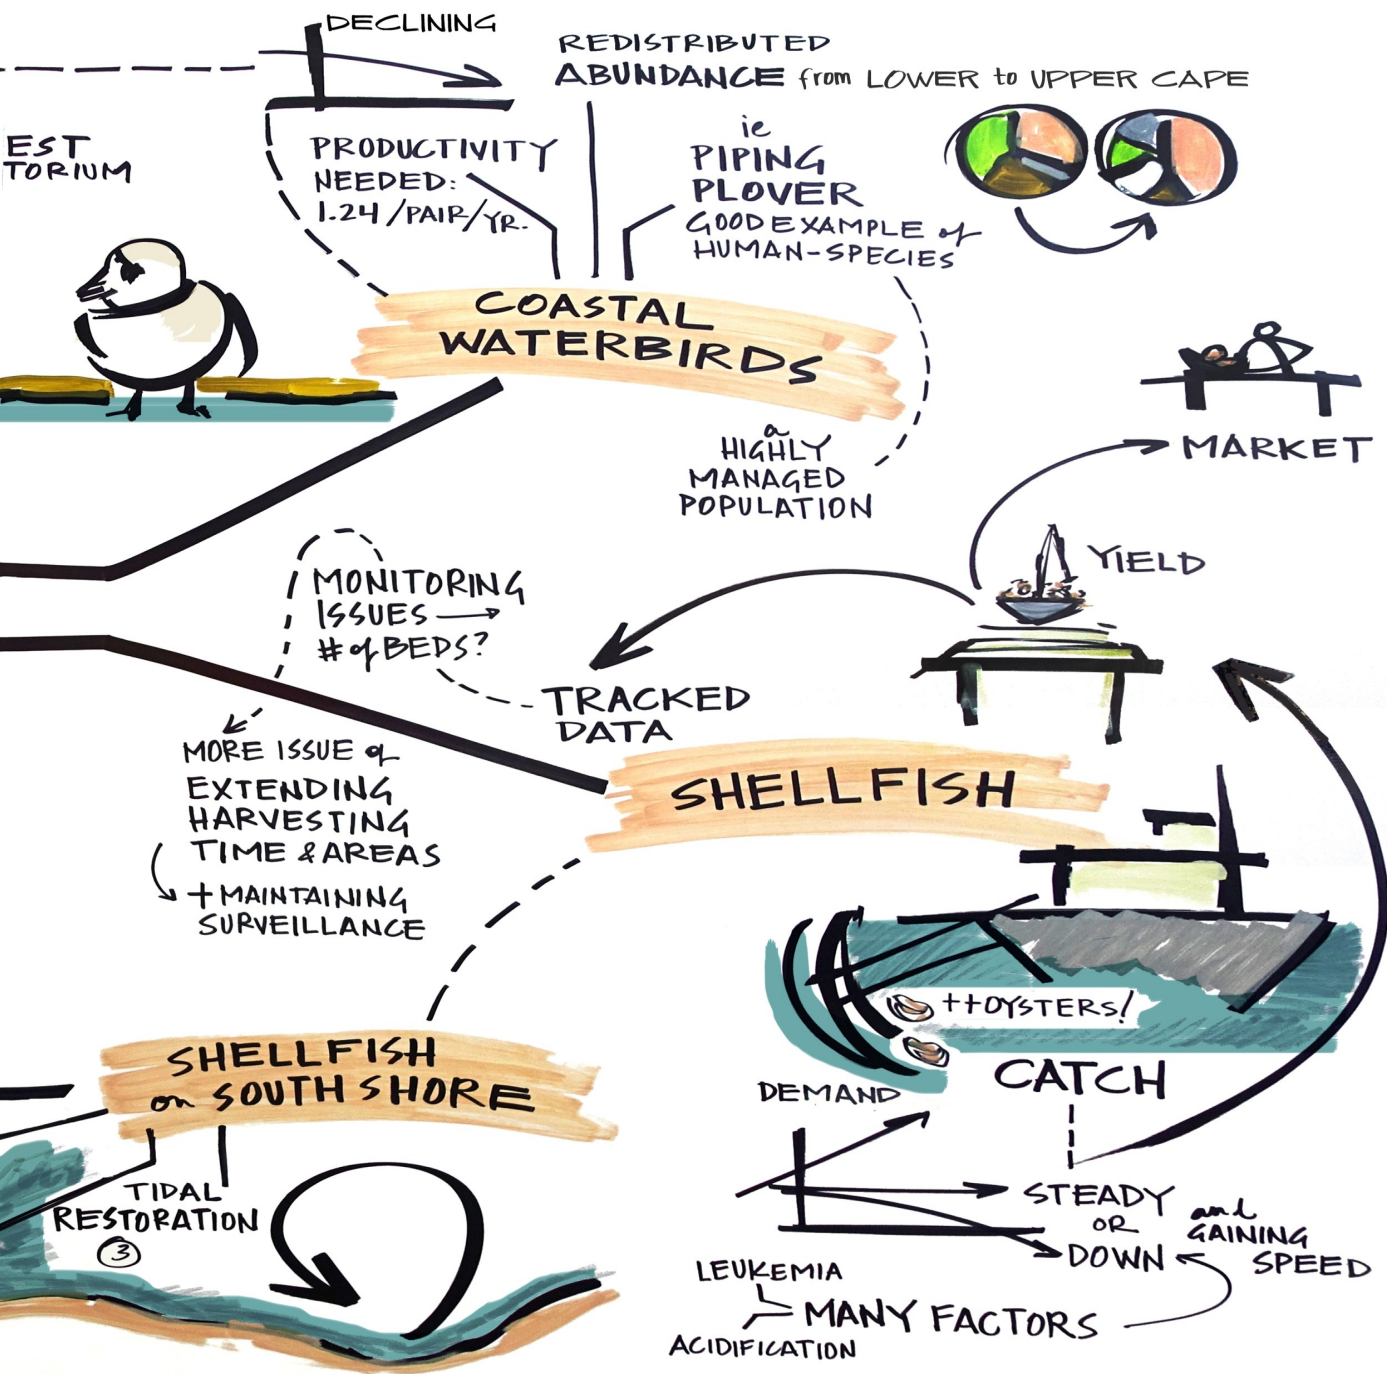 DECLINING
REDISTRIBUTED
ABUNDANCE from LOWER to UPPER CAPE
EST
TORIUM
PRODUCTIVITY
NEEDED:
1.24/PAIR/YR.
ie
PIPING
PLOVER
GOOD EXAMPLE of
HUMAN-SPECIES
COASTAL
WATERBIRDS
a
HIGHLY
MANAGED
POPULATION
MARKET
YIELD
MONITORING
ISSUES
# of BEDS?
TRACKED
DATA
MORE ISSUE of
EXTENDING
HARVESTING
TIME & AREAS
+ MAINTAINING
SURVEILLANCE
SHELLFISH
++OYSTERS!
CATCH
DEMAND
STEADY
OR
DOWN
and
GAINING
SPEED
LEUKEMIA
MANY FACTORS
ACIDIFICATION
SHELLFISH
on SOUTH SHORE
TIDAL
RESTORATION
3